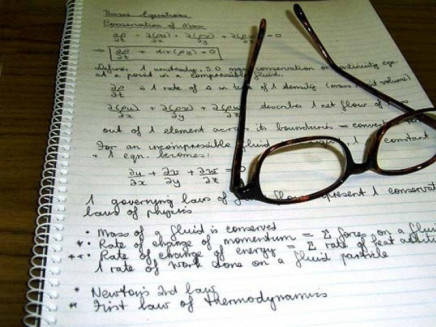 Basic Equations
Conservation of Mass
∂ρ/∂t + ∂(ρu)/∂x + ∂(ρv)/∂y + ∂(ρw)/∂z = 0
∂ρ/∂t + div(ρu) = 0
Define: 1 unsteady, 3D mass conservation or continuity eqn
at a point in a compressible fluid.
∂ρ/∂t is 1 rate of Δ in time of 1 density (mass volume)
∂(ρu)/∂x + ∂(ρv)/∂y + describes 1 net flow of mass
out of 1 element across its boundaries
For an incompressible fluid 1 constant
+ 1 eqn. becomes:
∂u/∂x + ∂v/∂y + = 0
1 governing laws of flow represent 1 conservation
laws of physics
• Mass of a fluid is conserved
* • Rate of change of momentum = Σ forces on a fluid
** • Rate of change of energy = Σ rate of heat addition
1 rate of work done on a fluid particle
* Newton's 2nd law
** First law of thermodynamics